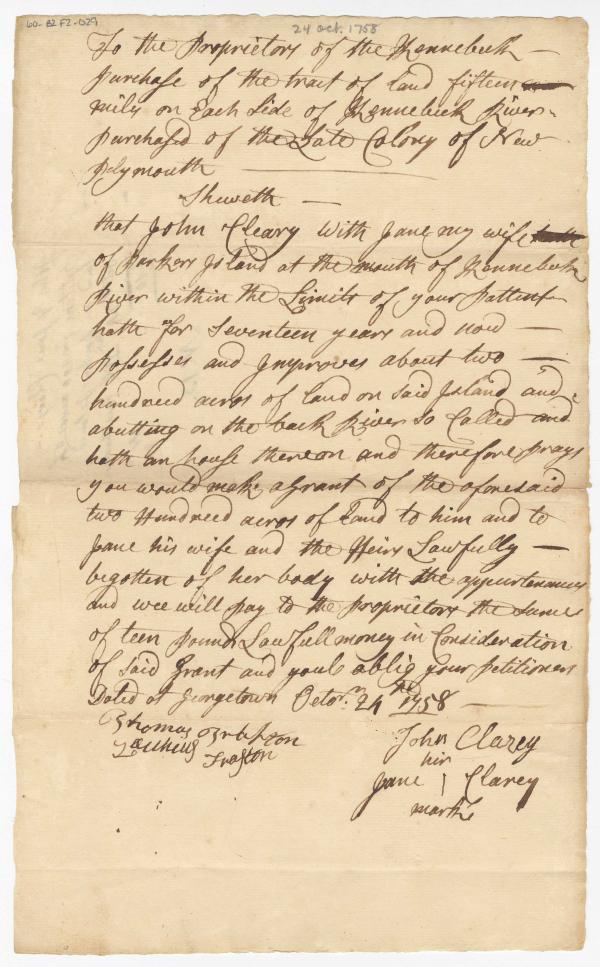 60-B2 F2-029
24 oct. 1758
To the Proprietors of the Kennebeck —
purchase of the tract of land fifteen
miles on Each Side of Kennebeck River
purchased of the Late Colony of New
Plymouth —
Sheweth —
that John Clarey With Jane my wife
of Parkers Island at the mouth of Kennebeck
River within the Limits of your Pattent
hath for Seventeen years and now —
Possesses and Improves about two —
hundreed acros of land on said Island and
abutting on the back River So Called and
hath an house thereon and therefore prays
you would make a Grant of the aforesaid
two Hundreed acros of Land to him and to
Jane his wife and the Heirs Lawfully —
begotten of her body with the appurtenances
and wee will pay to the Proprietors the Sume
of teen pound Lawfull money in Consideration
of said Grant and youl oblig your petitioners
Dated at Georgetown Octor. 24th 1758 —
Thomas
John Clarey
hir
Jane | Clarey
marke